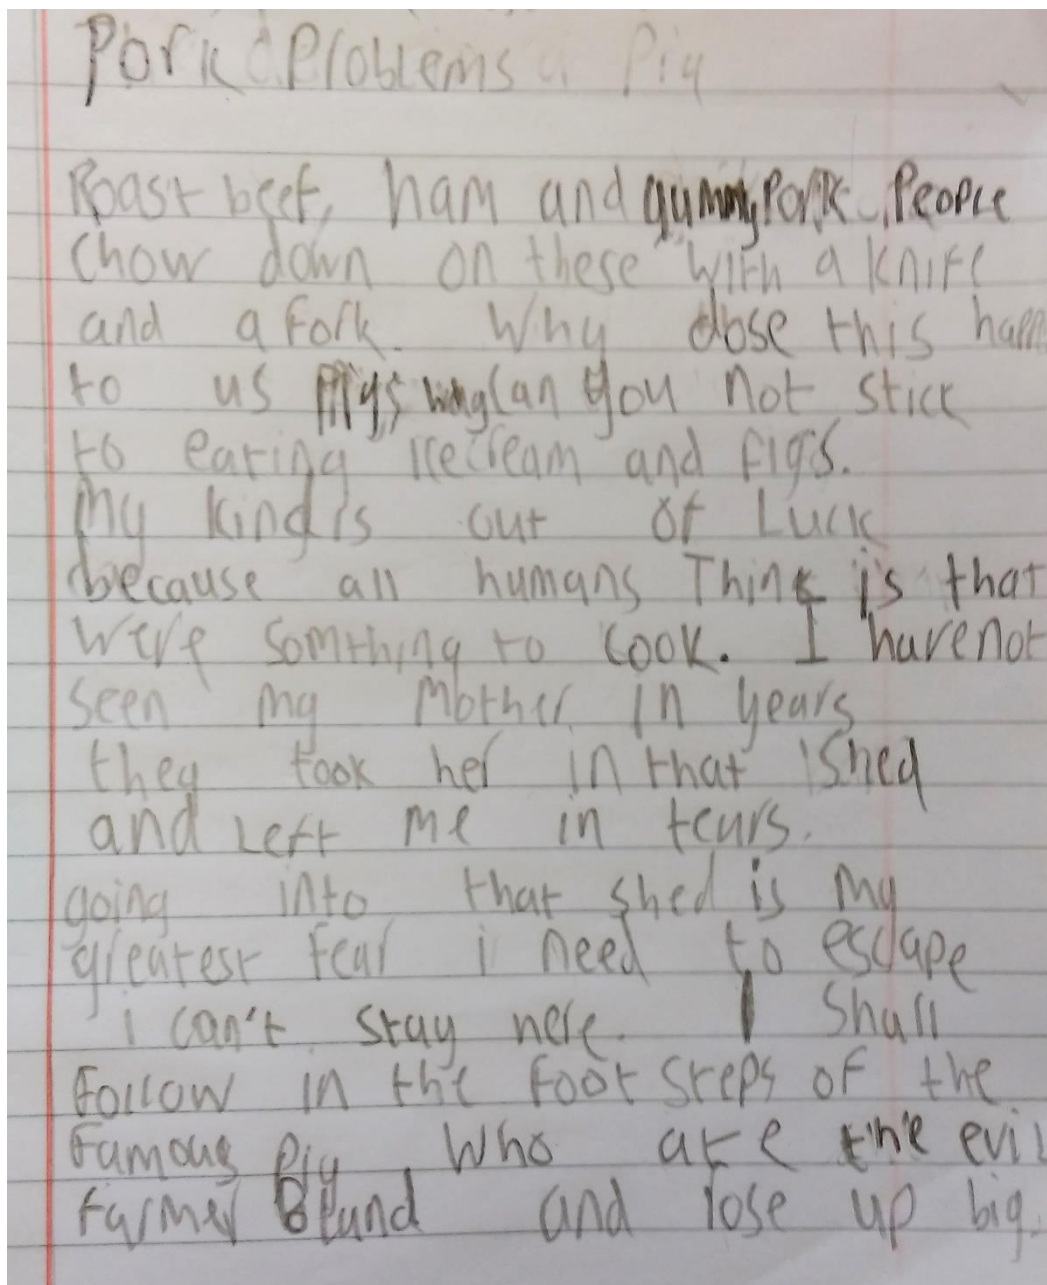 Pork Problems a Pig
Roast beef, ham and gummy Pork. People
Chow down on these with a knife
and a fork. Why dose this
to us Pigs why can you not stick
to eating icecream and figs.
My kind is out of Luck
because all humans Think is that
were somthing to cook. I have not
seen my mother in years
they took her in that shed
and Left me in tears.
going into that shed is my
greatest fear i need to escape
i can't stay here. I Shall
Follow in the foot steps of the
Famous Pig Who ate the evil
Farmer Bland and rose up big.